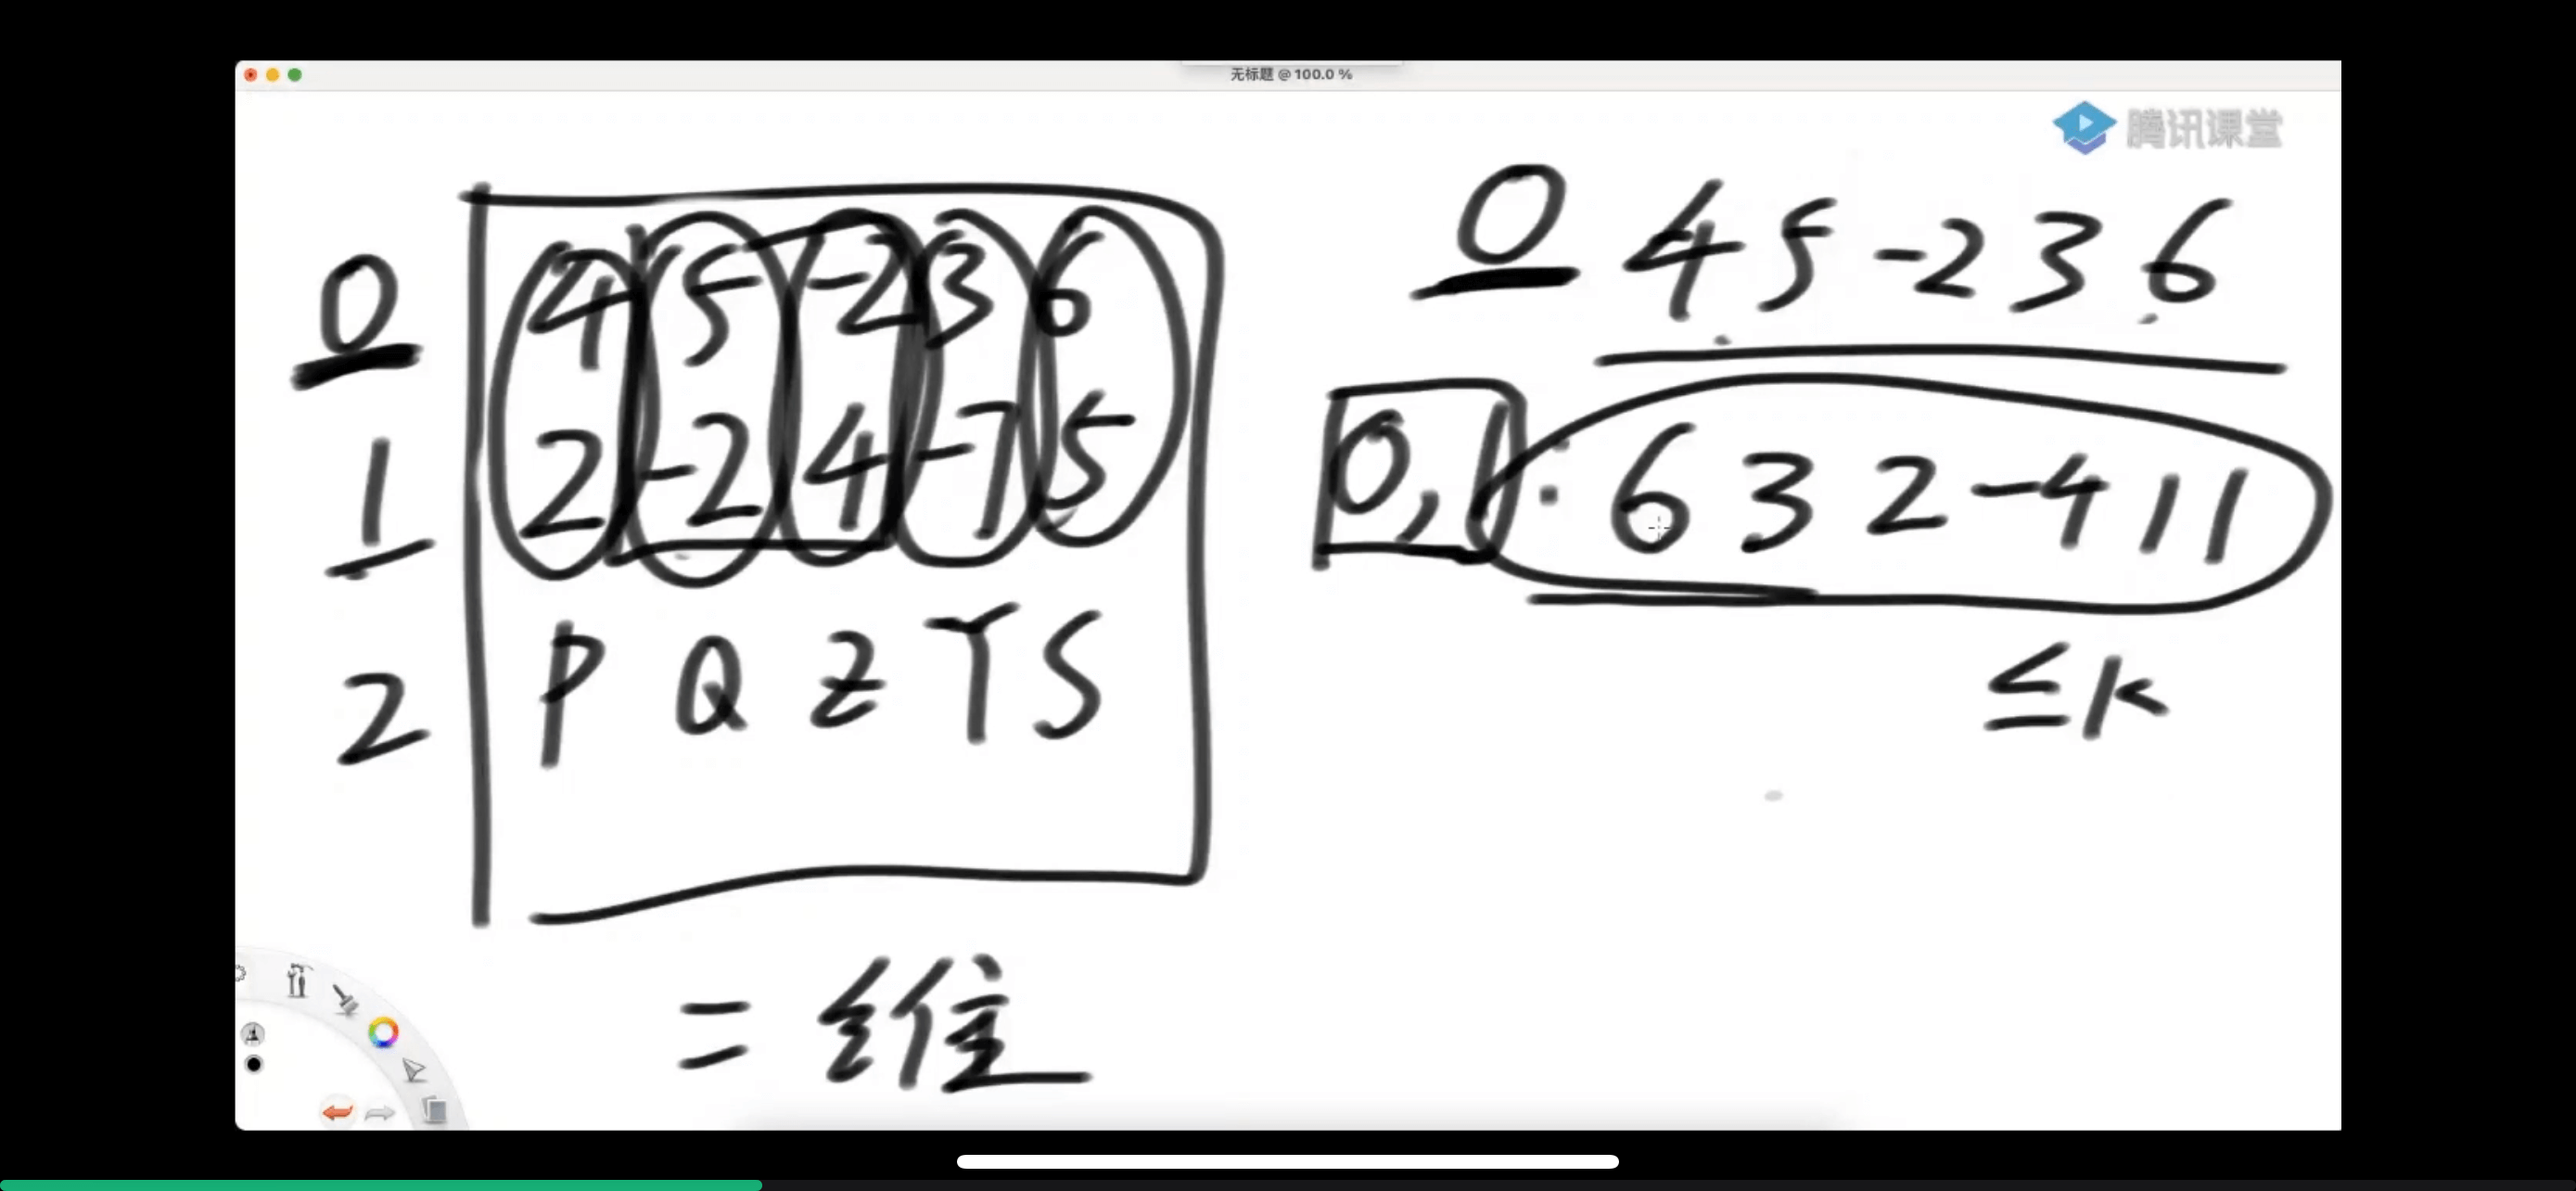 无标题 @ 100.0 %
腾讯课堂
0 4 5 -2 3 6
1 2 -2 4 -7 5
2 P Q Z T S
二维
0 4 5 -2 3 6
0,1: 6 3 2 -4 11
≤K